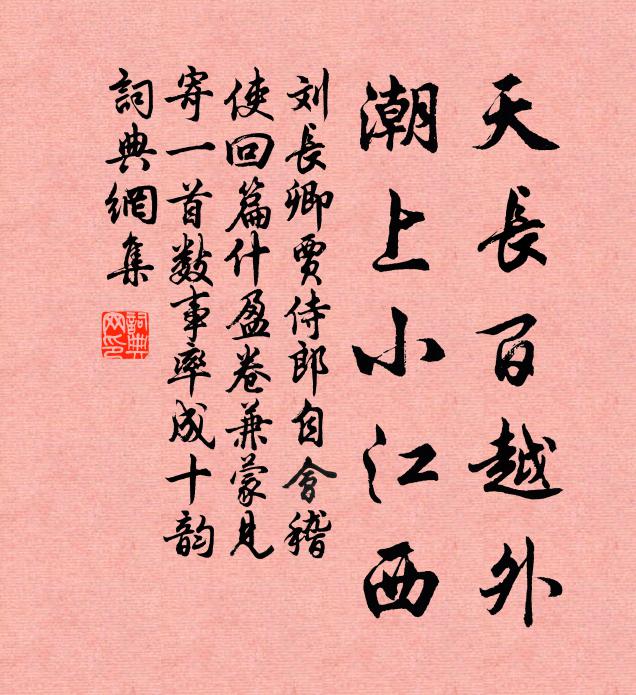 天長百越外
潮上小江西
刘長卿賈侍郎自會稽
使回篇什盈卷兼蒙見
寄一首数事率成十韵
詞典網集
詞典網印